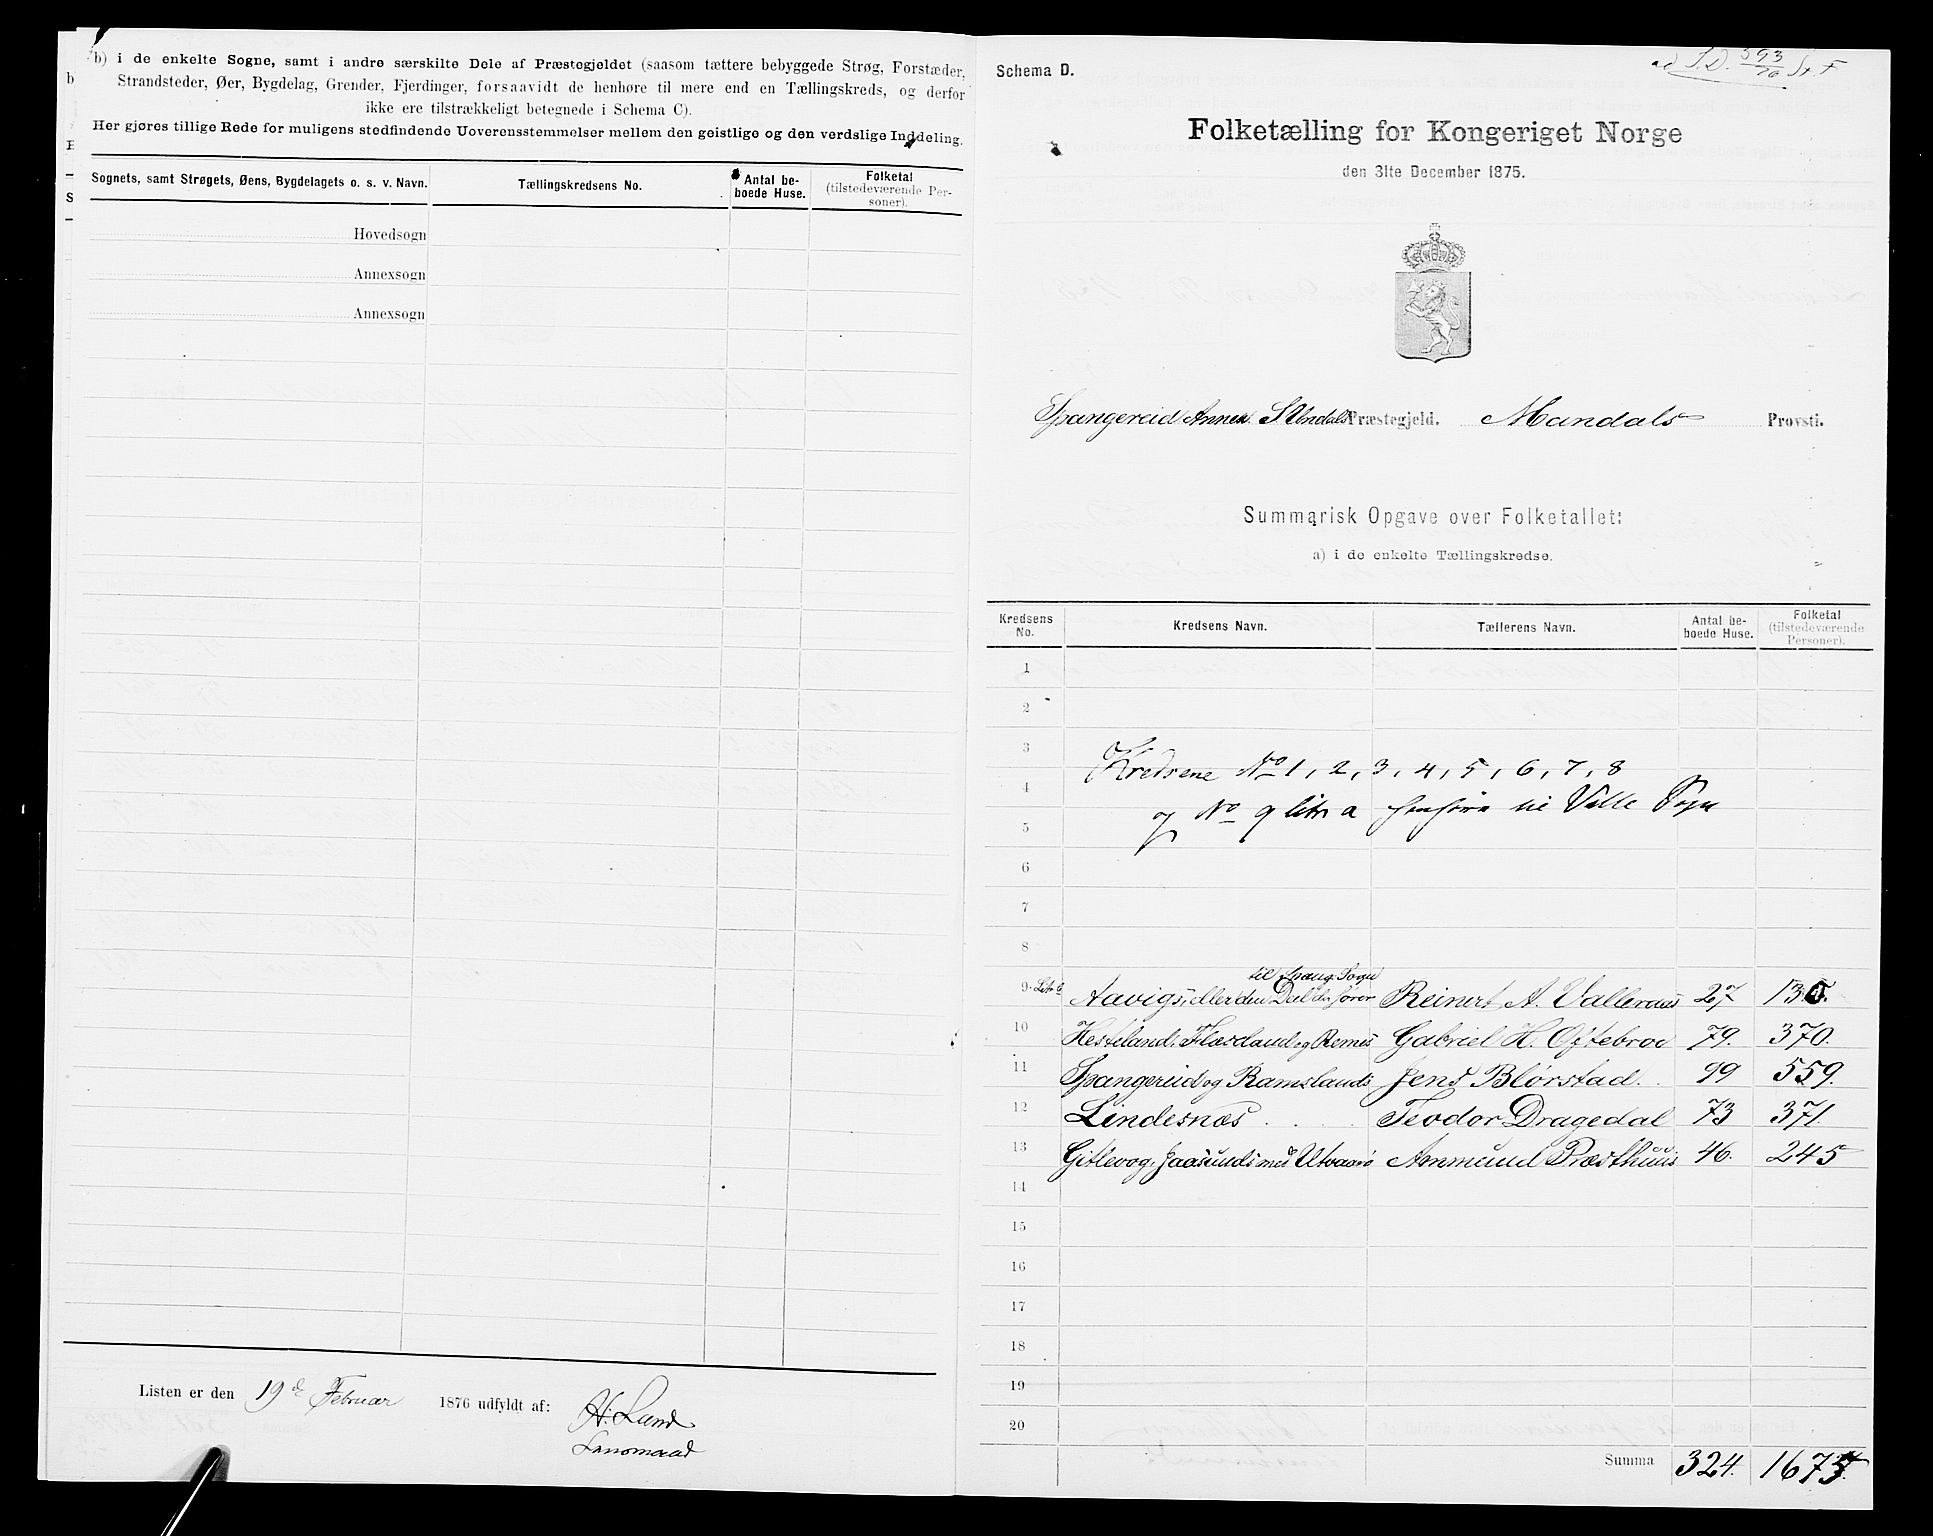 b) i de enkelte Sogne, samt i andre særskilte Dele af Præstegjeldet (saasom tættere bebyggede Strøg, Forstæder,
Strandsteder, Øer, Bygdelag, Grender, Fjerdinger, forsaavidt de henhøre til mere end en Tællingskreds, og derfor
ikke ere tilstrækkeligt betegnede i Schema C).
Her gjøres tillige Rede for muligens stedfindende Uoverensstemmelser mellem den geistlige og den verdslige Inddeling.
Sognets, samt Strøgets, Øens, Bygdelagets o. s. v. Navn.
Tællingskredsens No.
Antal be-
boede Huse.
Folketal
(tilstedeværende Per-
soner).
Hovedsogn
Annexsogn
Annexsogn
Listen er den 19de Februar 1876 udfyldt af: H. Lund
Lensmand
ad S.D. 593/76 St. F
Schema D.
Folketælling for Kongeriget Norge
den 31te December 1875.
Spangereid Annex S Undals Præstegjeld. Mandals Provsti.
Summarisk Opgave over Folketallet:
a) i de enkelte Tællingskredse.
Kredsens
No.
Kredsens Navn.
Tællerens Navn.
Antal be-
boede Huse.
Folketal
(tilstedeværende
Personer).
1
2
3
Kredsene No 1, 2, 3, 4, 5, 6, 7, 8
4
og No 9 litr a henhøre til Valle Sogn
5
6
7
8
til Spang. Sogn
9. Litr b Aavigs, eller den Deel der hører Reinert A. Valleraas 27 130.
10 Hesteland, Flæsdaud og Remes Gabriel H. Oftebroe 79. 370.
11 Spangereid og Ramslands Jens Blørstad. 99 559.
12 Lindesnæs Teodor Dragedal 73 371.
13 Gitlevog, Jaasunds med Utvaare Anmund Præsthuus 46. 245
14
15
16
17
18
19
20
Summa 324. 1675.